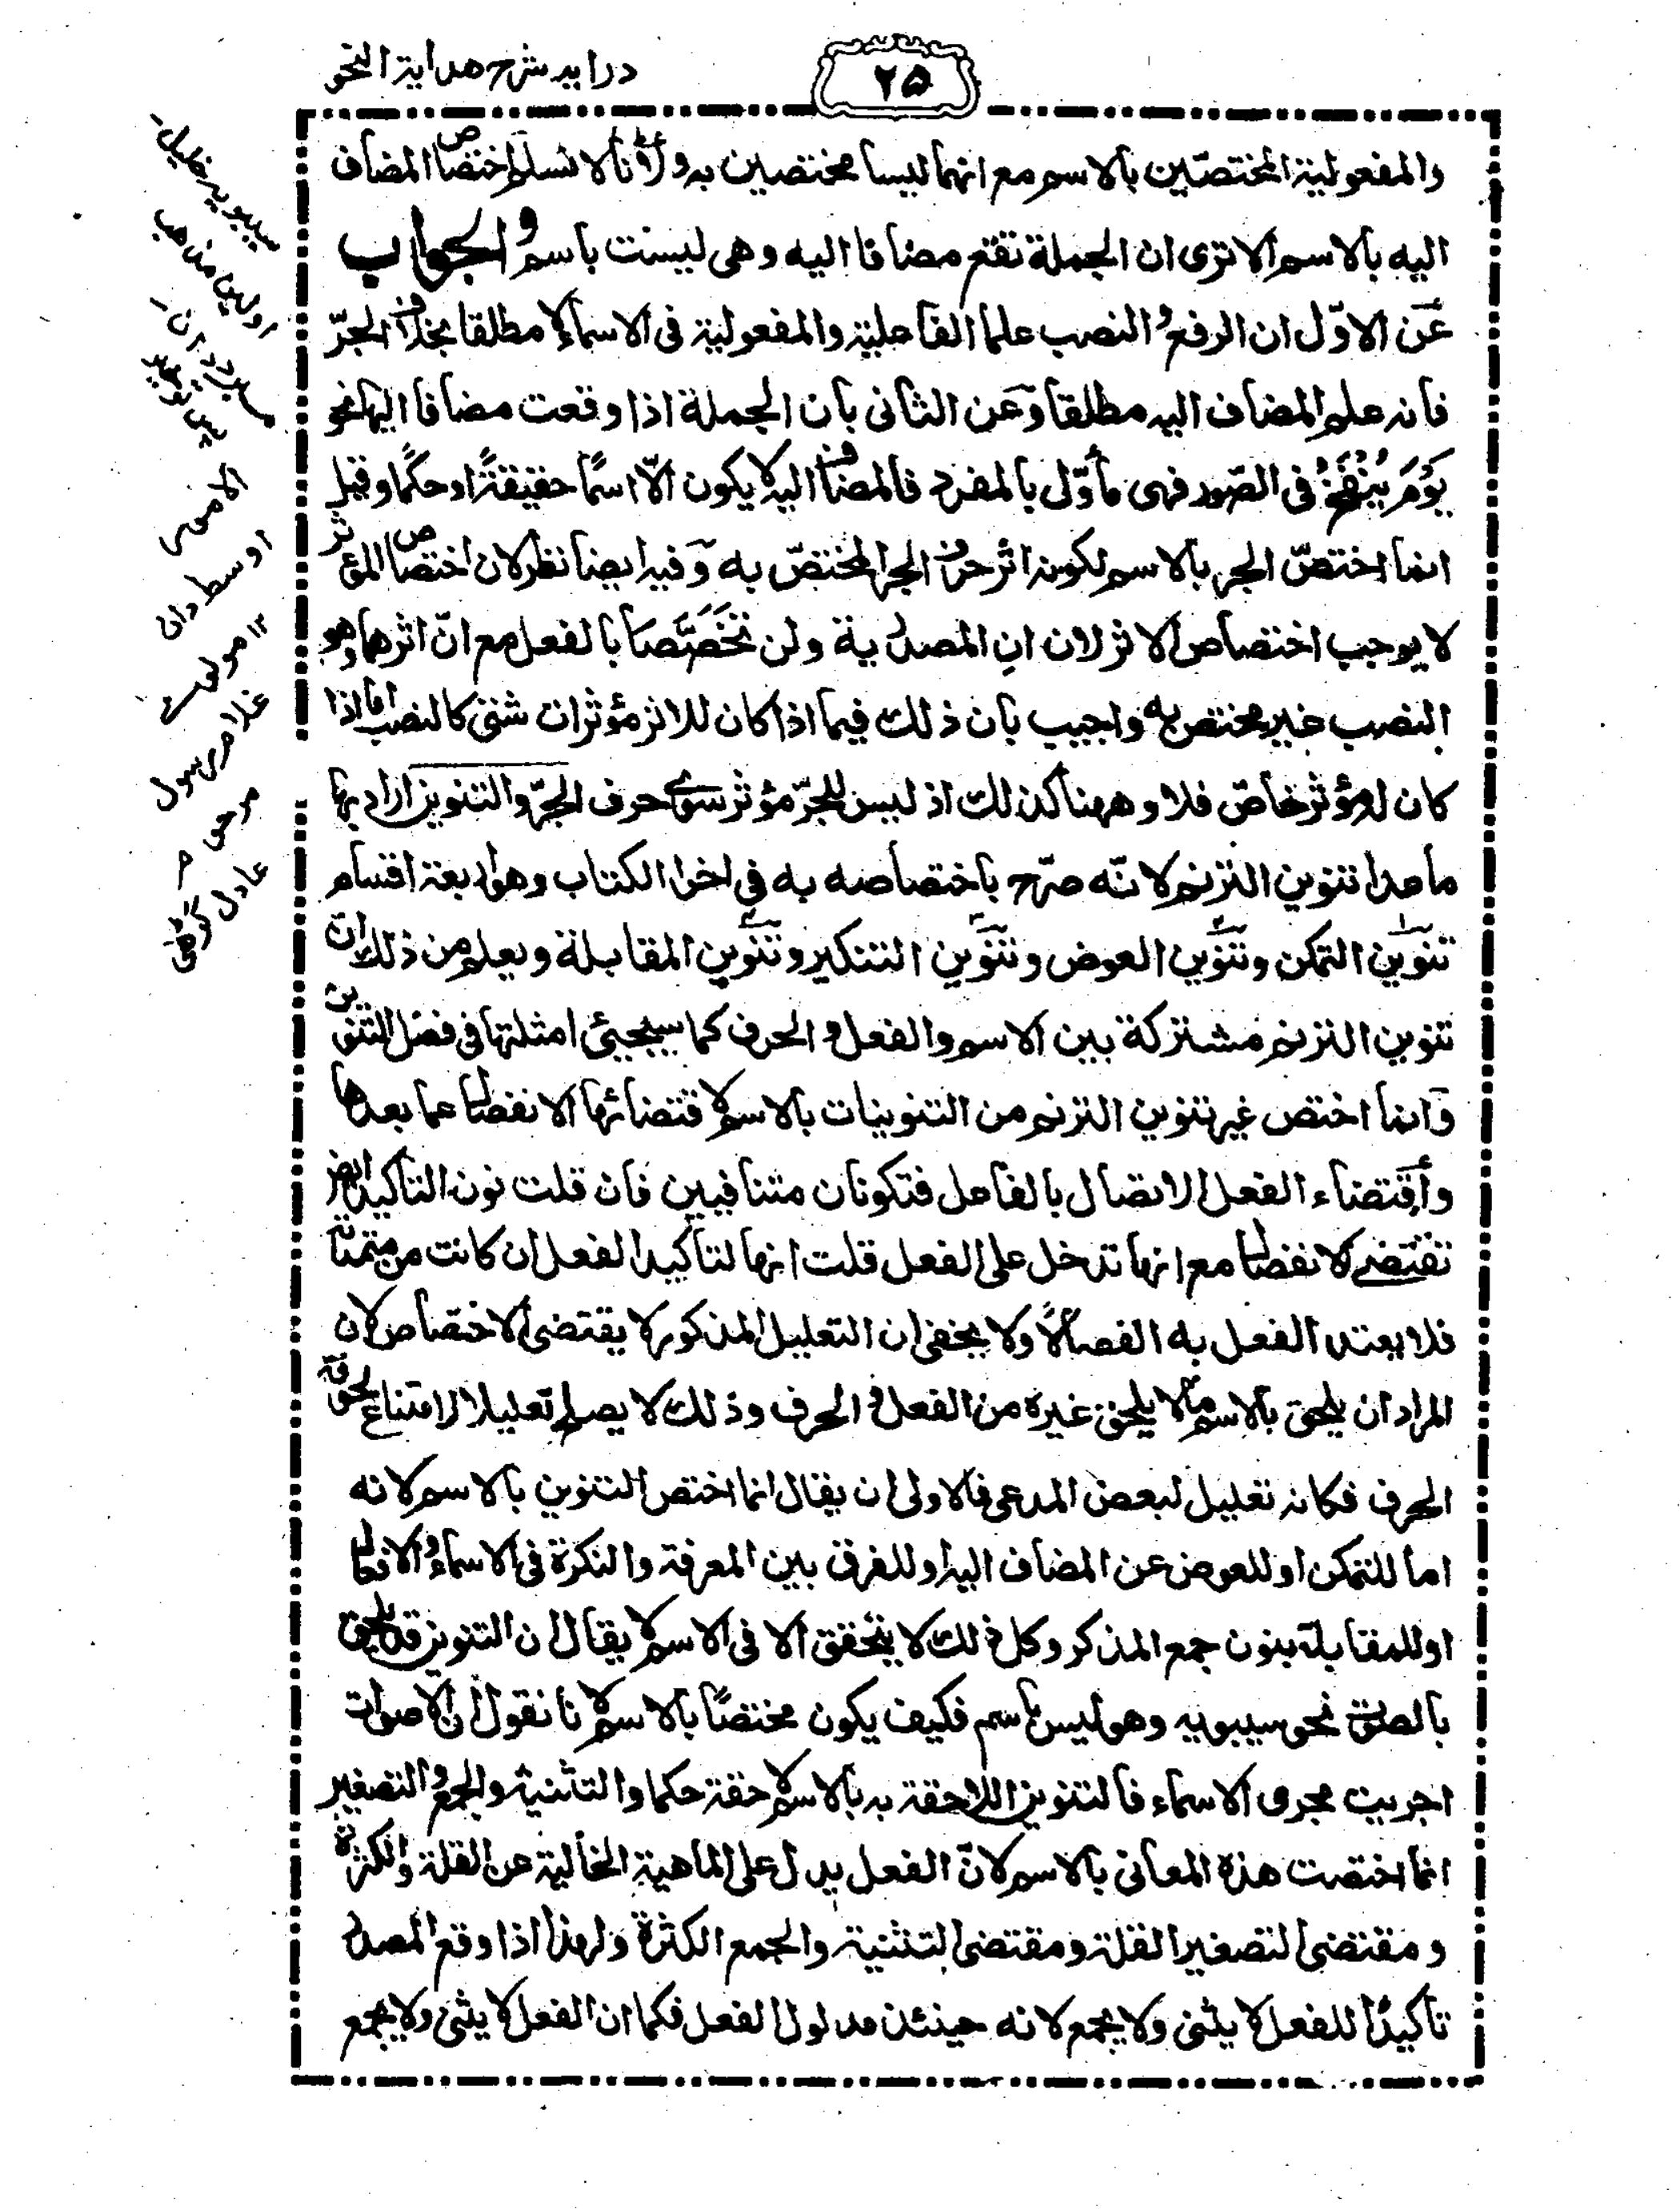 ۲۵
درايه شرح هداية النحو
والمفعولية المختصّين بالاسم مع انهما ليسا مختصين به ولأنا لا نسلم اختصاص المضاف
اليه بالاسم الا ترى ان الجملة تقع مضافا اليه وهى ليست باسم والجواب
عن الاوّل ان الرفع والنصب علما الفاعلية والمفعولية فى الاسماء لا مطلقا بخلاف الجرّ
فانه علم المضاف اليه مطلقا وعن الثانى بان الجملة اذا وقعت مضافا اليها نحو
يَوْمَ يُنْفَخُ فى الصّور فهى مأوّل بالمفرد فالمضاف اليه لا يكون الّا اسمًا حقيقةً او حكمًا وقيل
انما اختصّ الجر بالاسم لكونه اثر حرف الجر المختصّ به وفيه ايضا نظر لان اختصاص المؤثر
لا يوجب اختصاص الاثر لان ان المصدرية ولن تخصّصا بالفعل مع انّ اثرهما وهو
النصب غير مختص به واجيب بان ذلك فيما اذا كان للاثر مؤثرات شتى كالنصب اما اذا
كان له مؤثر خاصّ فلا وههنا كذلك اذ ليس للجرّ مؤثر سوى حرف الجرّ والتنوين اراد بها
ما عدا تنوين الترنم لانّه صرّح باختصاصه به فى اخر الكتاب وهو اربعة اقسام
تنوين التمكن وتنوين العوض وتنوين التنكير وتنوين المقابلة ويعلم من ذلك ان
تنوين الترنم مشتركة بين الاسم والفعل والحرف كما سيجيئ امثلتها فى فصل التنوين
وانما اختص غير تنوين الترنم من التنوينات بالاسم لاقتضائها الانفصال عما بعدها
واقتضاء الفعل الاتصال بالفاعل فتكونان متنافيين فان قلت نون التاكيد ايضا
تقتضى الانفصال مع انها تدخل على الفعل قلت انها لتاكيد الفعل ان كانت من متمماته
فلا يعتد الفعل به انفصالًا ولا يخفى ان التعليل المذكور لا يقتضى الاختصاص لان
المراد ان يلحق بالاسم ما لا يلحق غيره من الفعل والحرف وذلك لا يصلح تعليلا لامتناع لحوقه
الحرف فكانه تعليل لبعض المدعى فالاولى ان يقال انما اختص التنوين بالاسم لانه
اما للتمكن او للعوض عن المضاف اليه او للفرق بين المعرفة والنكرة فى الاسماء والافعال
او للمقابلة بنون جمع المذكر وكل ذلك لا يتحقق الا فى الاسم لا يقال ان التنوين قد يلحق
بالصوت نحو سيبويه وهو ليس باسم فكيف يكون مختصًا بالاسم لانا نقول ان الاصوات
اجريت مجرى الاسماء فالتنوين اللاحقة به بالاسم لاحقة حكما والتثنية والجمع والتصغير
انما اختصت هذه المعانى بالاسم لانّ الفعل يدل على الماهية الخالية عن القلة والكثرة
ومقتضى التصغير القلة ومقتضى التثنية والجمع الكثرة ولهذا اذا وقع المصدر
تاكيدًا للفعل لا يثنى ولا يجمع لانه حينئذ مدلول الفعل فكما ان الفعل لا يثنى ولا يجمع
سيبويه خليل
اولين مذهب
اوسط دان
۱۲ مولوى
غلام رسول
مرحوم
عادل گڑھى